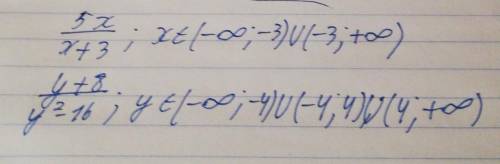 5x/(x+3); x∈(-∞;-3)∪(-3;+∞)
(y+8)/(y²-16); y∈(-∞;-4)∪(-4;4)∪(4;+∞)